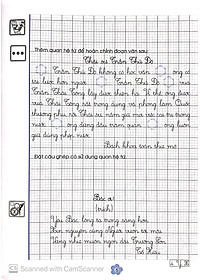 Thêm quan hệ từ để hoàn chỉnh đoạn văn sau:
Thái sư Trần Thủ Độ
Trần Thủ Độ không có học vấn ông có
tài lược hơn người Trần Thủ Độ
Trần Thái Tông lấy được thiên hạ. Vì thế ông được
vua Thái Tông rất trọng dụng và phong làm Quốc
thượng phụ rồi Thái sư nắm giữ mọi việc cai trị trong
nước ông đứng đầu trăm quan ông luôn
giữ đúng phép nước.
Bách khoa toàn thư mở
Đặt câu ghép có sử dụng quan hệ từ.
Bác ơi!
(trích)
Yêu Bác, lòng ta trong sáng hơn
Xin nguyện cùng Người vươn tới mãi
Vững như muôn ngọn dải Trường Sơn.
Tố Hữu
CS Scanned with CamScanner